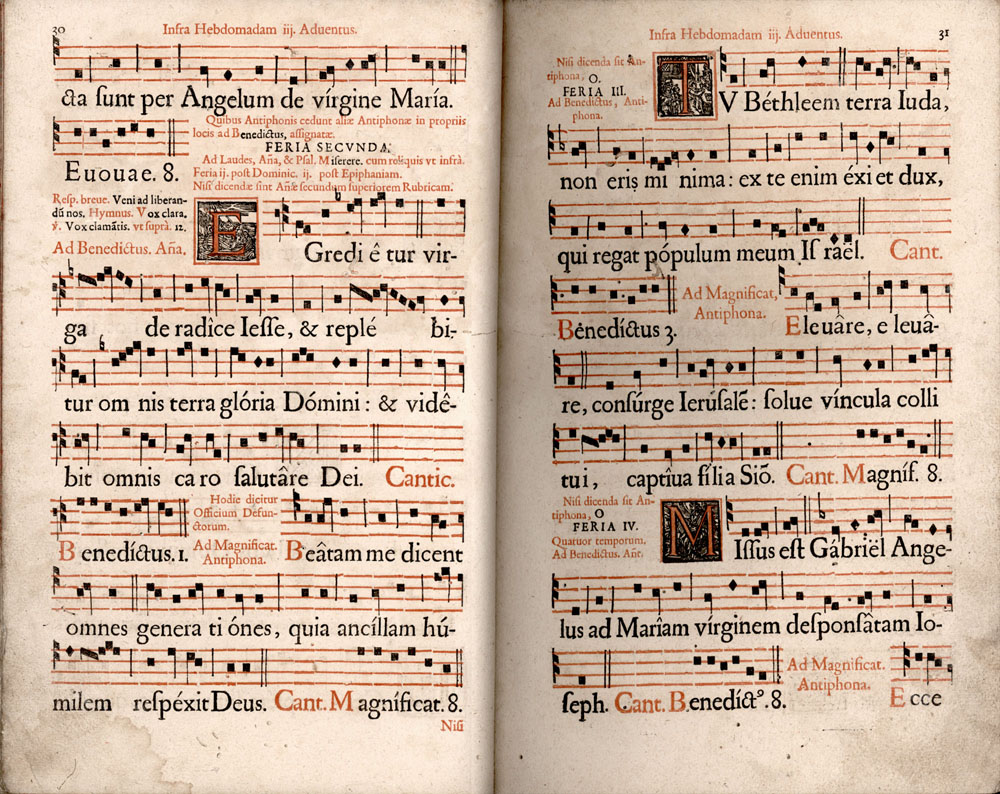 30
Infra Hebdomadam iij. Aduentus.
cta sunt per Angelum de vírgine María.
Quibus Antiphonis cedunt aliæ Antiphonæ in propriis
locis ad Benedictus, assignatæ.
FERIA SECVNDA.
Ad Laudes, Aña, & Psal. Miserere. cum reliquis vt infrà.
Euouae. 8.
Feria ij. post Dominic. ij. post Epiphaniam.
Nisi dicendæ sint Añæ secundum superiorem Rubricam.
Resp. breue. Veni ad liberan-
dū nos. Hymnus. Vox clara.
℣. Vox clamātis. vt suprà. 12.
Ad Benedictus. Aña.
EGredi ê tur vir-
ga de radîce Iesse, & replé bi-
tur om nis terra glória Dómini: & vidê-
bit omnis ca ro salutâre Dei. Cantic.
Hodie dicitur
Officium Defun-
ctorum.
Benedíctus. 1.
Ad Magnificat.
Antiphona.
Beâtam me dicent
omnes genera ti ónes, quia ancíllam hú-
milem respéxit Deus. Cant. Magníficat. 8.
Nisi
Infra Hebdomadam iij. Aduentus.
31
Nisi dicenda sit An-
tiphona, O.
FERIA III.
Ad Benedictus, Anti-
phona.
TV Béthleem terra Iuda,
non eris mi nima: ex te enim éxi et dux,
qui regat pópulum meum Is raël. Cant.
Benedíctus 3.
Ad Magnificat,
Antiphona.
Eleuâre, e leuâ-
re, consúrge Ierúsalē: solue víncula colli
tui, captîua fília Siō. Cant. Magníf. 8.
Nisi dicenda sit An-
tiphona, O
FERIA IV.
Quatuor temporum.
Ad Benedictus. Añt.
MIssus est Gábriël Ange-
lus ad Marîam vírginem desponsâtam Io-
seph. Cant. Benedíctꝰ. 8.
Ad Magnificat.
Antiphona.
Ecce